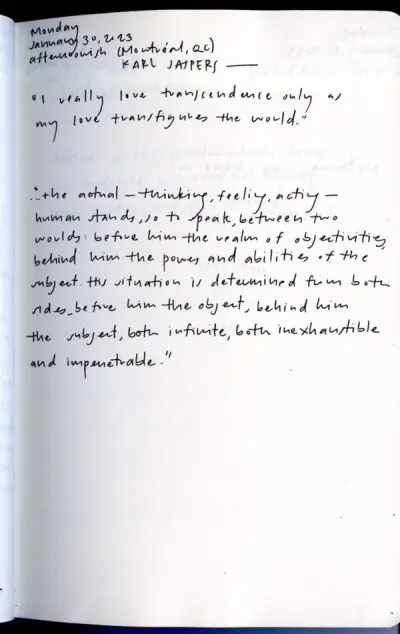 Monday
January 30, 2023
afternoonish (Montréal, QC)
KARL JASPERS —
"I really love transcendence only as
my love transfigures the world."
"...the actual — thinking, feeling, acting —
human stands, so to speak, between two
worlds: before him the realm of objectivities,
behind him the powers and abilities of the
subject. His situation is determined from both
sides, before him the object, behind him
the subject, both infinite, both inexhaustible
and impenetrable."